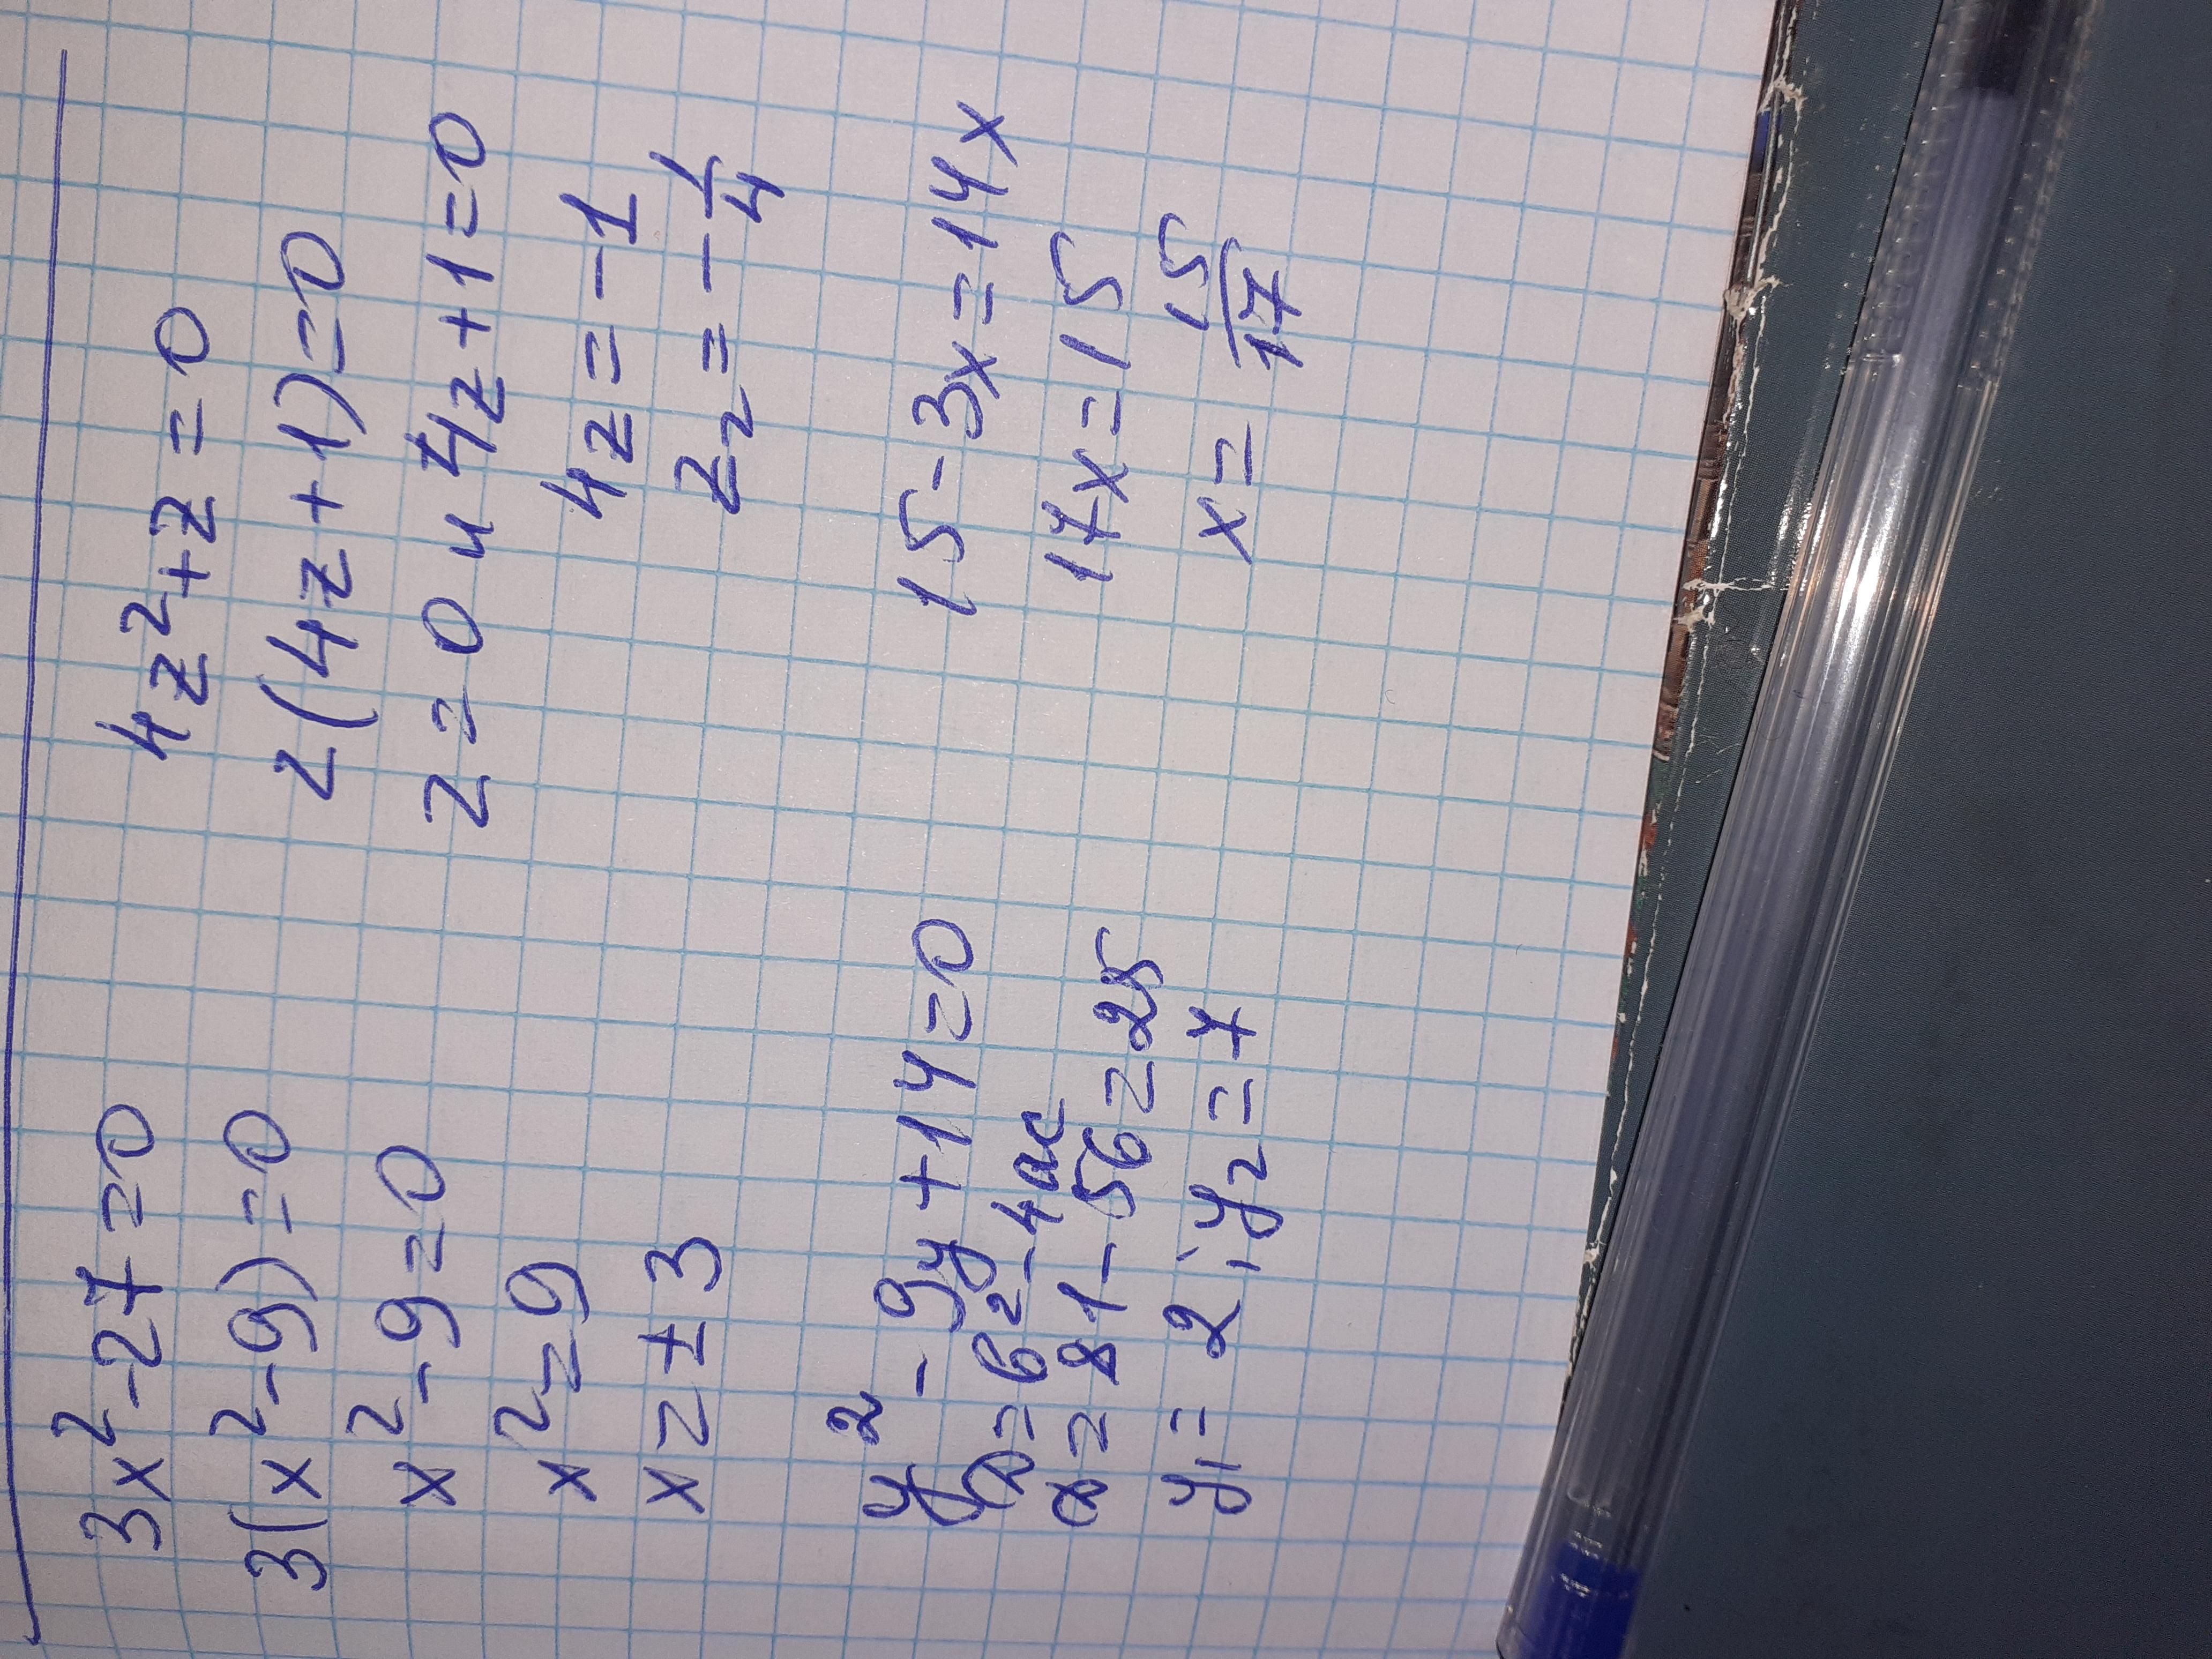 3x² - 27 = 0
3(x² - 9) = 0
x² - 9 = 0
x² = 9
x = ± 3
4z² + z = 0
z(4z + 1) = 0
z = 0 и 4z + 1 = 0
4z = -1
z₂ = - 1/4
y² - 9y + 14 = 0
D = b² - 4ac
D = 81 - 56 = 25
y₁ = 2; y₂ = 7
15 - 3x = 14x
17x = 15
x = 15/17